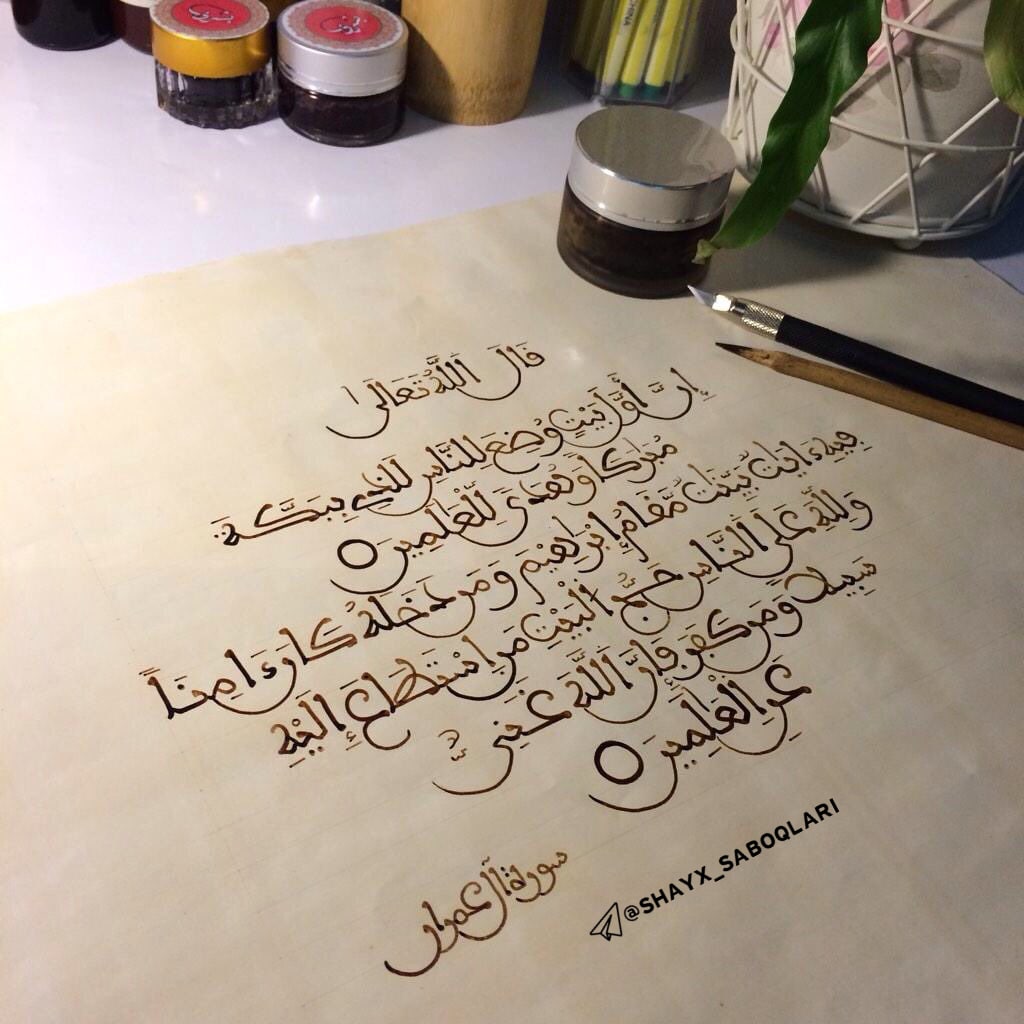 قَالَ اللَّهُ تَعَالَى
إِنَّ أَوَّلَ بَيْتٍ وُضِعَ لِلنَّاسِ لَلَّذِي بِبَكَّةَ
مُبَٰرَكًا وَهُدًى لِّلْعَٰلَمِينَ
فِيهِ ءَايَٰتٌ بَيِّنَٰتٌ مَّقَامُ إِبْرَٰهِيمَ وَمَن دَخَلَهُ كَانَ ءَامِنًا
وَلِلَّهِ عَلَى النَّاسِ حِجُّ الْبَيْتِ مَنِ اسْتَطَاعَ إِلَيْهِ
سَبِيلًا وَمَن كَفَرَ فَإِنَّ اللَّهَ غَنِيٌّ
عَنِ الْعَٰلَمِينَ
سورة آل عمران
@SHAYX_SABOQLARI